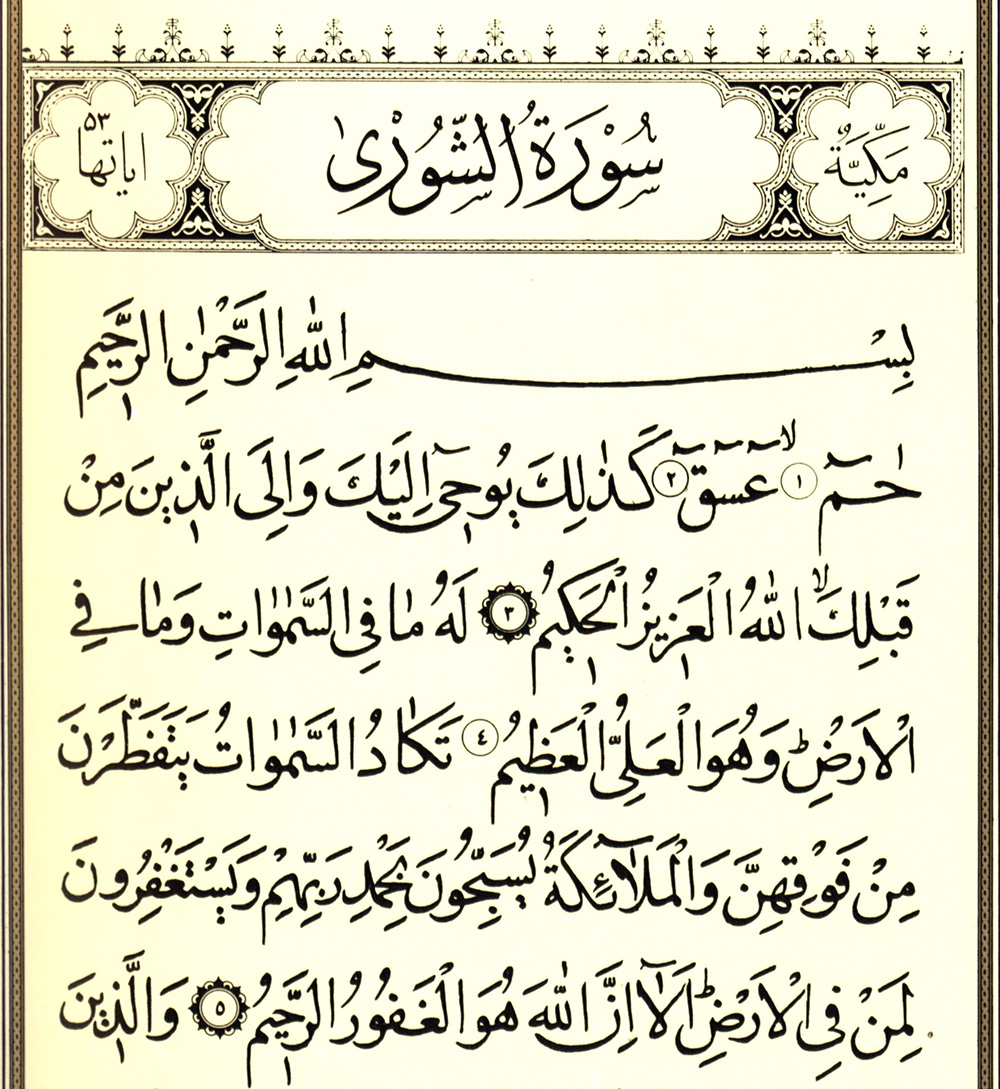 مَكِّيَّةٌ
سُوْرَةُ الشُّوْرٰى
اياتها ٥٣
بِسْمِ اللّٰهِ الرَّحْمٰنِ الرَّحٖيمِ
حٰمٓ ۙ ﴿١﴾ عٓسٓقٓ ﴿٢﴾ كَذٰلِكَ يُوحٖٓى اِلَيْكَ وَاِلَى الَّذٖينَ مِنْ
قَبْلِكَ ۙ اللّٰهُ الْعَزٖيزُ الْحَكٖيمُ ﴿٣﴾ لَهُ مَا فِى السَّمٰوَاتِ وَمَا فِى
الْاَرْضِ ؕ وَهُوَ الْعَلِىُّ الْعَظٖيمُ ﴿٤﴾ تَكَادُ السَّمٰوَاتُ يَتَفَطَّرْنَ
مِنْ فَوْقِهِنَّ وَالْمَلٰٓائِكَةُ يُسَبِّحُونَ بِحَمْدِ رَبِّهِمْ وَيَسْتَغْفِرُونَ
لِمَنْ فِى الْاَرْضِ ؕ اَلَٓا اِنَّ اللّٰهَ هُوَ الْغَفُورُ الرَّحٖيمُ ﴿٥﴾ وَالَّذٖينَ